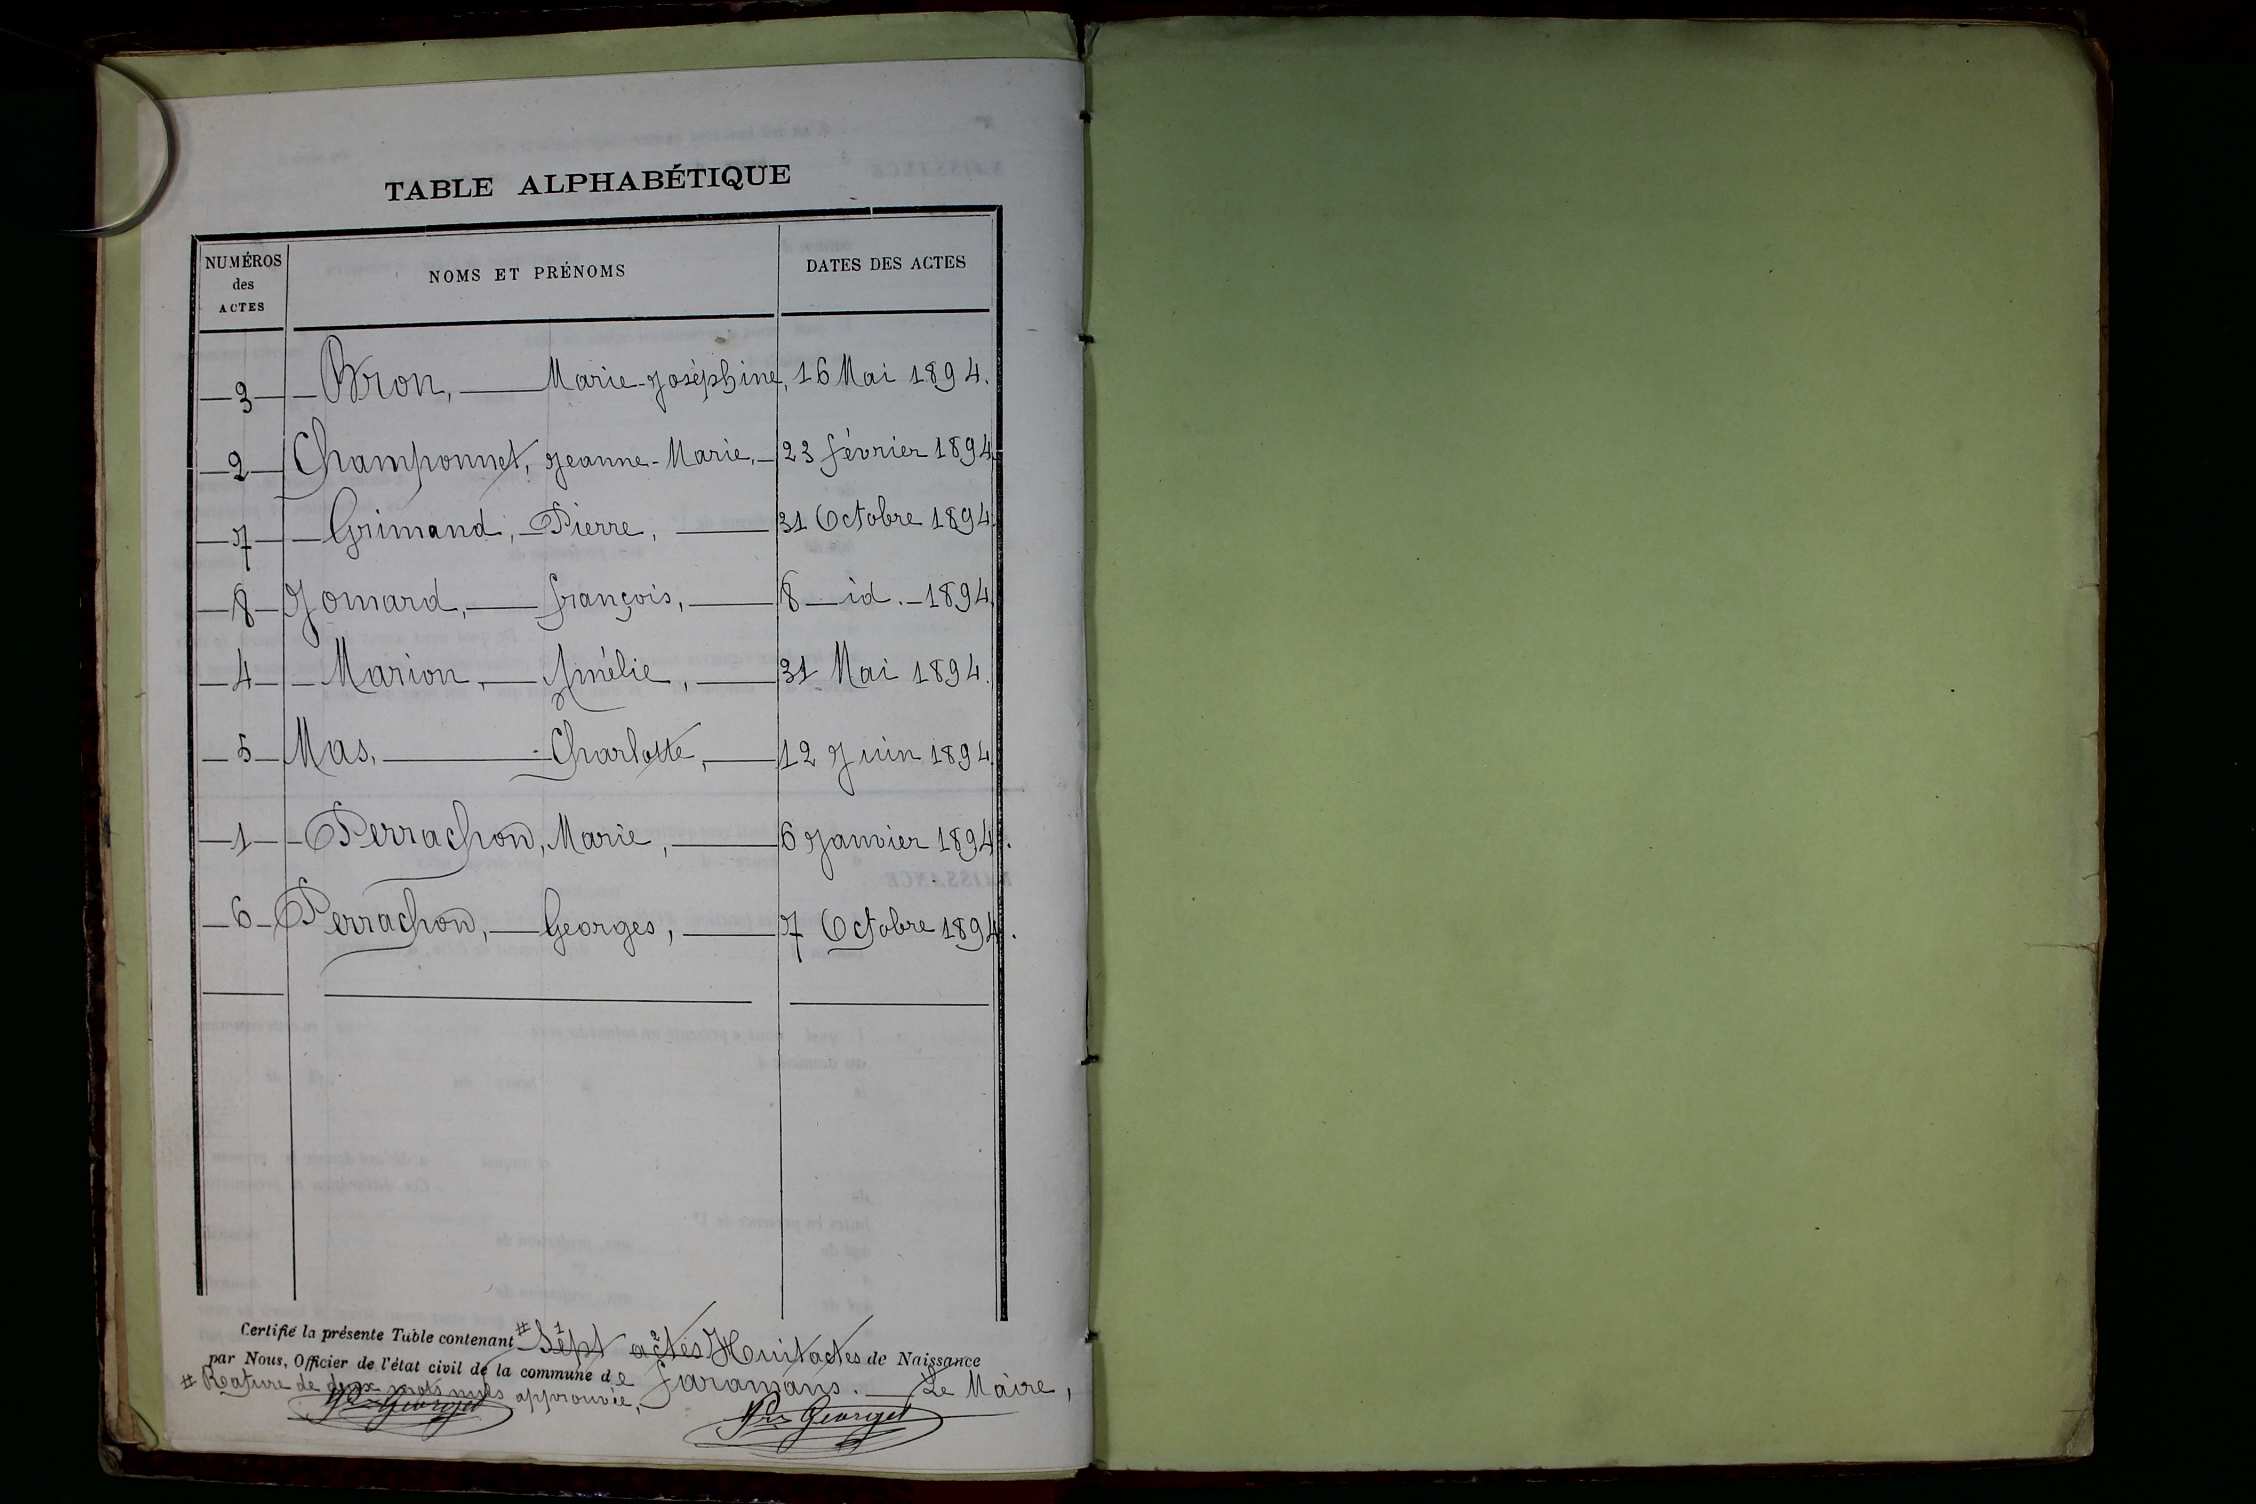 TABLE ALPHABÉTIQUE
NUMÉROS des ACTES NOMS ET PRÉNOMS DATES DES ACTES
3 Bron, Marie-Joséphine, 16 Mai 1894.
2 Champonnet, Jeanne-Marie, 23 février 1894
7 Grimand, Pierre, 31 Octobre 1894
8 Jomard, françois, 8 id. 1894
4 Marion, Amélie, 31 Mai 1894.
5 Mas, Charlotte, 12 Juin 1894
1 Perrachon, Marie, 6 Janvier 1894.
6 Perrachon, Georges, 7 Octobre 1894.
Certifié la présente Table contenant # Sept 1 actes 2 Huit actes de Naissance
par Nous, Officier de l'état civil de la commune de faramans. Le Maire,
# Rature de deux mots nuls approuvée,
Georget
Georget